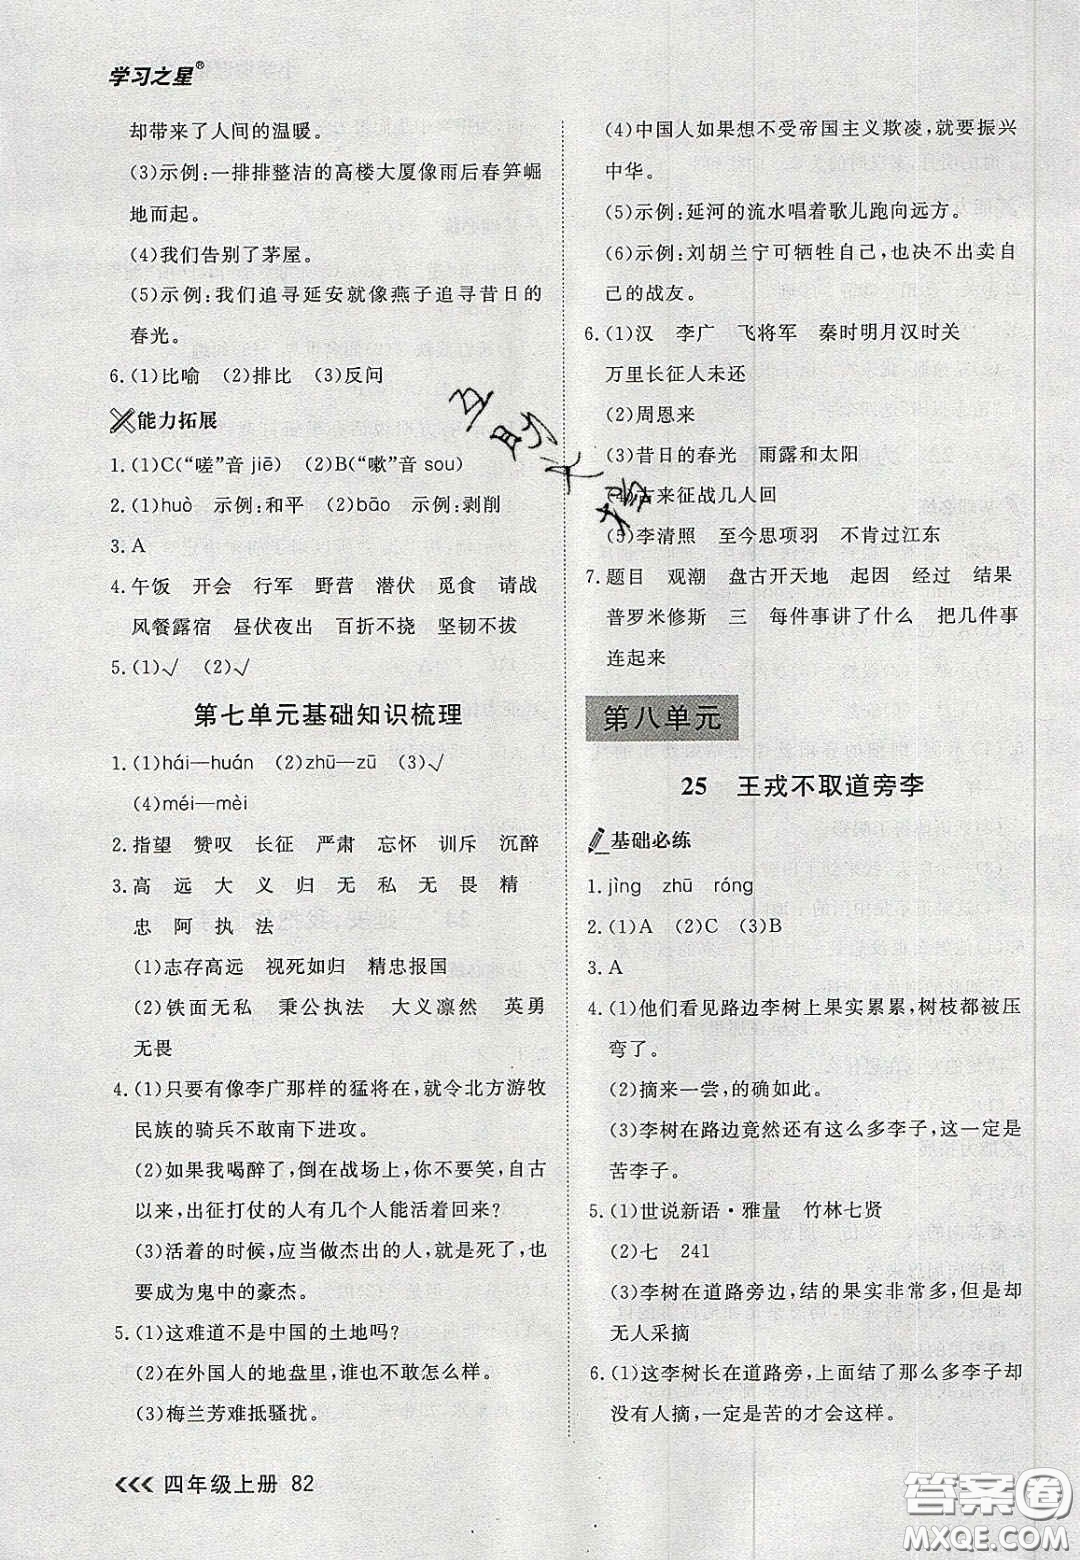 学习之星®
却带来了人间的温暖。
(3)示例:一排排整洁的高楼大厦像雨后春笋崛
地而起。
(4)我们告别了茅屋。
(5)示例:我们追寻延安就像燕子追寻昔日的
春光。
6.(1)比喻 (2)排比 (3)反问
能力拓展
1.(1)C(“嗟”音 jiē) (2)B(“嗽”音 sou)
2.(1)huò 示例:和平 (2)bāo 示例:剥削
3.A
4.午饭 开会 行军 野营 潜伏 觅食 请战
风餐露宿 昼伏夜出 百折不挠 坚韧不拔
5.(1)√ (2)√
第七单元基础知识梳理
1.(1)hái—huán (2)zhū—zū (3)√
(4)méi—mèi
2.指望 赞叹 长征 严肃 忘怀 训斥 沉醉
3.高 远 大 义 归 无 私 无 畏 精
忠 阿 执 法
(1)志存高远 视死如归 精忠报国
(2)铁面无私 秉公执法 大义凛然 英勇
无畏
4.(1)只要有像李广那样的猛将在,就令北方游牧
民族的骑兵不敢南下进攻。
(2)如果我喝醉了,倒在战场上,你不要笑,自古
以来,出征打仗的人有几个人能活着回来?
(3)活着的时候,应当做杰出的人,就是死了,也
要成为鬼中的豪杰。
5.(1)这难道不是中国的土地吗?
(2)在外国人的地盘里,谁也不敢怎么样。
(3)梅兰芳难抵骚扰。
四年级上册 82
(4)中国人如果想不受帝国主义欺凌,就要振兴
中华。
(5)示例:延河的流水唱着歌儿跑向远方。
(6)示例:刘胡兰宁可牺牲自己,也决不出卖自
己的战友。
6.(1)汉 李广 飞将军 秦时明月汉时关
万里长征人未还
(2)周恩来
(3)昔日的春光 雨露和太阳
(4)古来征战几人回
(5)李清照 至今思项羽 不肯过江东
7.题目 观潮 盘古开天地 起因 经过 结果
普罗米修斯 三 每件事讲了什么 把几件事
连起来
第八单元
25 王戎不取道旁李
基础必练
1.jìng zhū róng
2.(1)A (2)C (3)B
3.A
4.(1)他们看见路边李树上果实累累,树枝都被压
弯了。
(2)摘来一尝,的确如此。
(3)李树在路边竟然还有这么多李子,这一定是
苦李子。
5.(1)世说新语·雅量 竹林七贤
(2)七 241
(3)李树在道路旁边,结的果实非常多,但是却
无人采摘
6.(1)这李树长在道路旁,上面结了那么多李子却
没有人摘,一定是苦的才会这样。
互助文档
答案圈
MXQE.COM